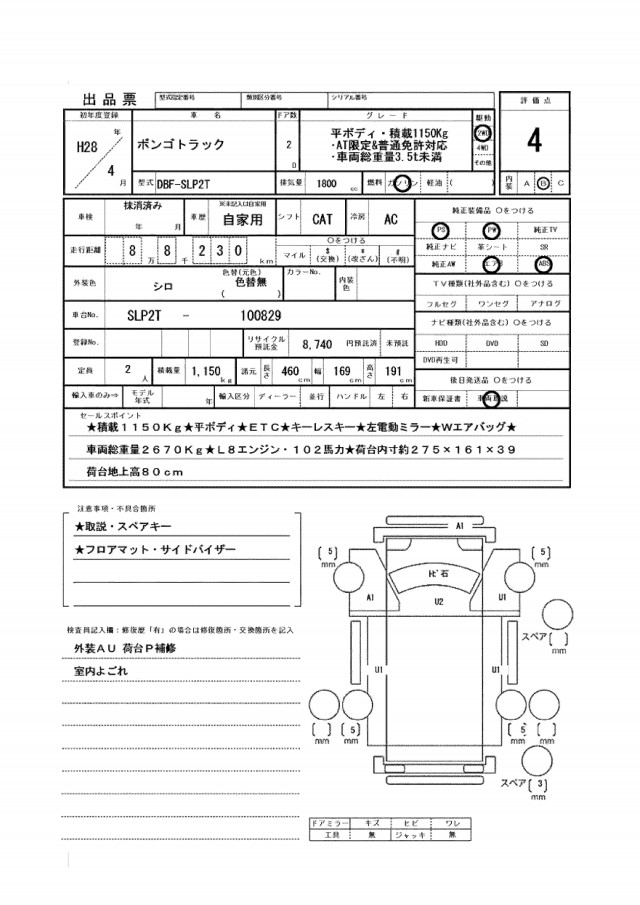 出品票 型式指定番号 類別区分番号 シリアル番号
評価点
4
初年度登録 車名 ドア数 グレード 駆動
H28年 4月
ボンゴトラック
2 D
平ボディ・積載1150Kg
・AT限定&普通免許対応
・車両総重量3.5t未満
2WD
4WD
その他
型式 DBF-SLP2T 排気量 1800 cc 燃料 ガソリン 軽油 ( )
内装 A B C
車検 抹消済み 年 月 車歴 ※未記入は自家用 自家用 シフト CAT 冷房 AC
走行距離 8 万 8 千 2 3 0 km 〇をつける マイル $ (交換) * (改ざん) # (不明)
外装色 シロ 色替(元色) 色替無 ( ) カラーNo. 内装色
車台No. SLP2T - 100829
登録No. リサイクル預託金 8,740 円預託済 未預託
定員 2 人 積載量 1,150 kg 諸元 長さ 460 cm 幅 169 cm 高さ 191 cm
輸入車のみ⇒ モデル年式 年 輸入区分 ディーラー 並行 ハンドル 左 右
純正装備品 〇をつける
PS PW 純正TV
純正ナビ 革シート SR
純正AW エアB ABS
TV種類(社外品含む) 〇をつける
フルセグ ワンセグ アナログ
ナビ種類(社外品含む) 〇をつける
HDD DVD SD
DVD再生可
後日発送品 〇をつける
新車保証書 車両取説
セールスポイント
★積載1150Kg★平ボディ★ETC★キーレスキー★左電動ミラー★Wエアバッグ★
車両総重量2670Kg★L8エンジン・102馬力★荷台内寸約275×161×39
荷台地上高80cm
注意事項・不具合箇所
★取説・スペアキー
★フロアマット・サイドバイザー
検査員記入欄:修復歴「有」の場合は修復箇所・交換箇所を記入
外装AU 荷台P補修
室内よごれ
A1
(5) mm
(5) mm
トビ石
A1 U2 U1
スペア ( ) mm
U1 U1
( ) mm (5) mm
(5) mm ( ) mm
スペア (3) mm
ドアミラー キズ ヒビ ワレ
工具 無 ジャッキ 無